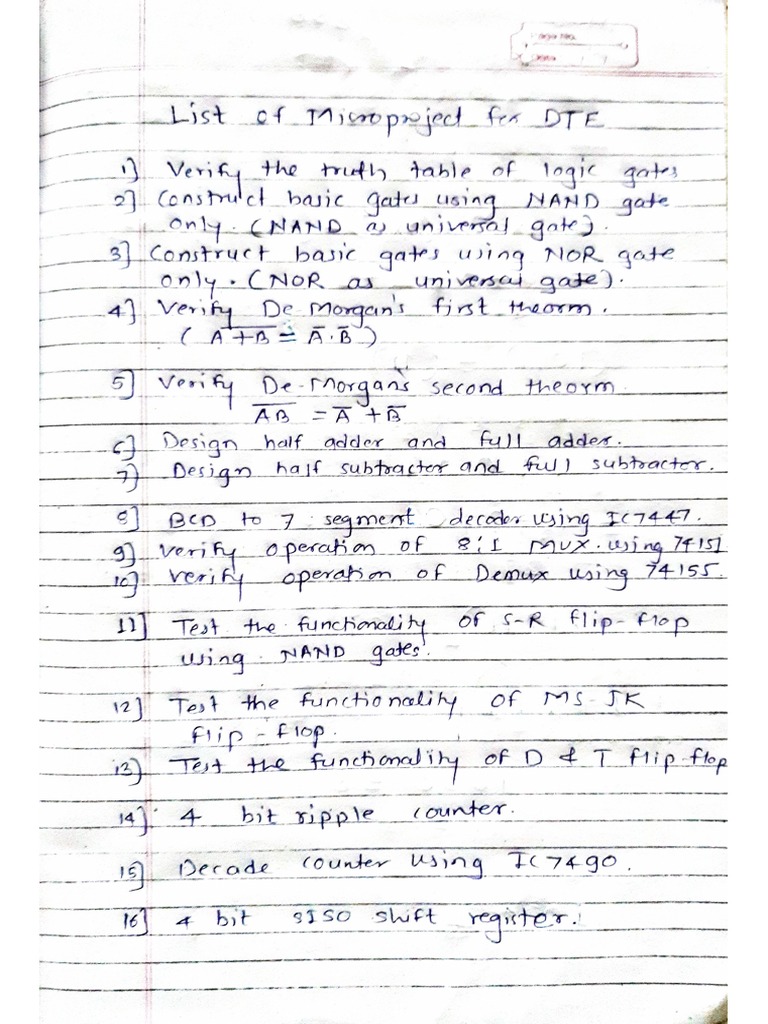 Page No.
Date
List of Microproject for DTE
1] Verify the truth table of logic gates
2] Construct basic gates using NAND gate
only. (NAND as universal gate).
3] Construct basic gates using NOR gate
only. (NOR as universal gate).
4] Verify De Morgan's first theorm.
( A̅+̅B̅ = A̅.B̅ )
5] Verify De-Morgan's second theorm
A̅B̅ = A̅ + B̅
6] Design half adder and full adder.
7] Design half subtracter and full subtracter.
8] BCD to 7 segment decoder using IC7447.
9] Verify operation of 8:1 MUX. using 74151
10] Verify operation of Demux using 74155.
11] Test the functionality of S-R flip-flop
using NAND gates.
12] Test the functionality of MS-JK
flip-flop.
13] Test the functionality of D & T flip-flop
14] 4 bit ripple counter.
15] Decade counter using IC7490.
16] 4 bit SISO shift register.